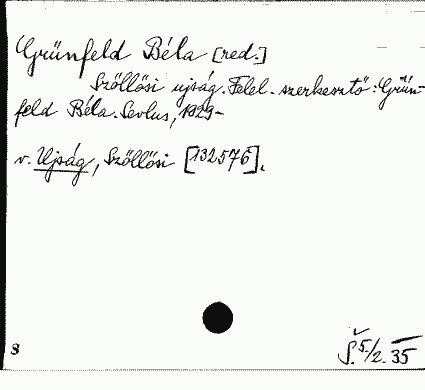 Grünfeld Béla [red.]
Szőllősi ujság. Felel. szerkesztő: Grün-
feld Béla. Sevlus, 1929-
v. Ujság, Szőllősi [132576].
8
Š. 5./2. 35